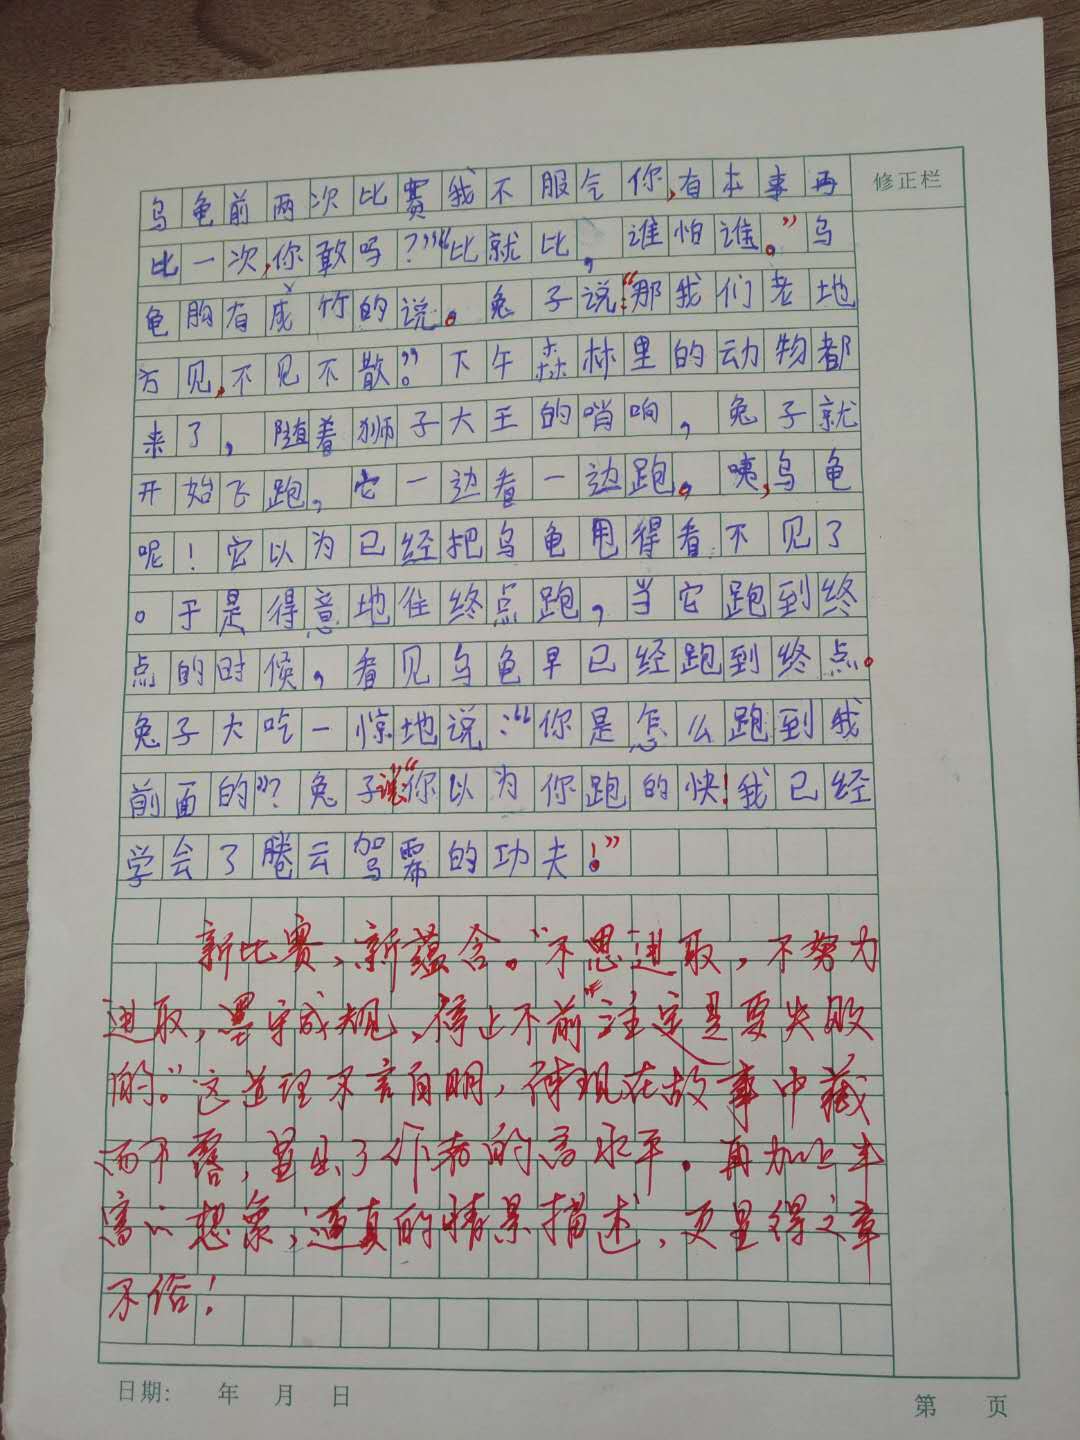 修正栏
乌龟前两次比赛我不服气你,有本事再
比一次,你敢吗?”“比就比,谁怕谁。”乌
龟胸有成竹的说。兔子说:“那我们老地
方见,不见不散”。下午森林里的动物都
来了,随着狮子大王的哨响,兔子就
开始飞跑,它一边看一边跑。咦,乌龟
呢!它以为已经把乌龟甩得看不见了
。于是得意地往终点跑,当它跑到终
点的时候,看见乌龟早已经跑到终点。
兔子大吃一惊地说:“你是怎么跑到我
前面的”?兔子说:“你以为你跑的快!我已经
学会了腾云驾雾的功夫!”
新比赛,新蕴含。“不思进取,不努力
进取,墨守成规,停止不前”注定是要失败
的。”这道理不言自明,体现在故事中藏
而不露,显出了作者的高水平。再加上丰
富的想象,逼真的情景描述,更显得文章
不俗!
日期: 年 月 日
第 页